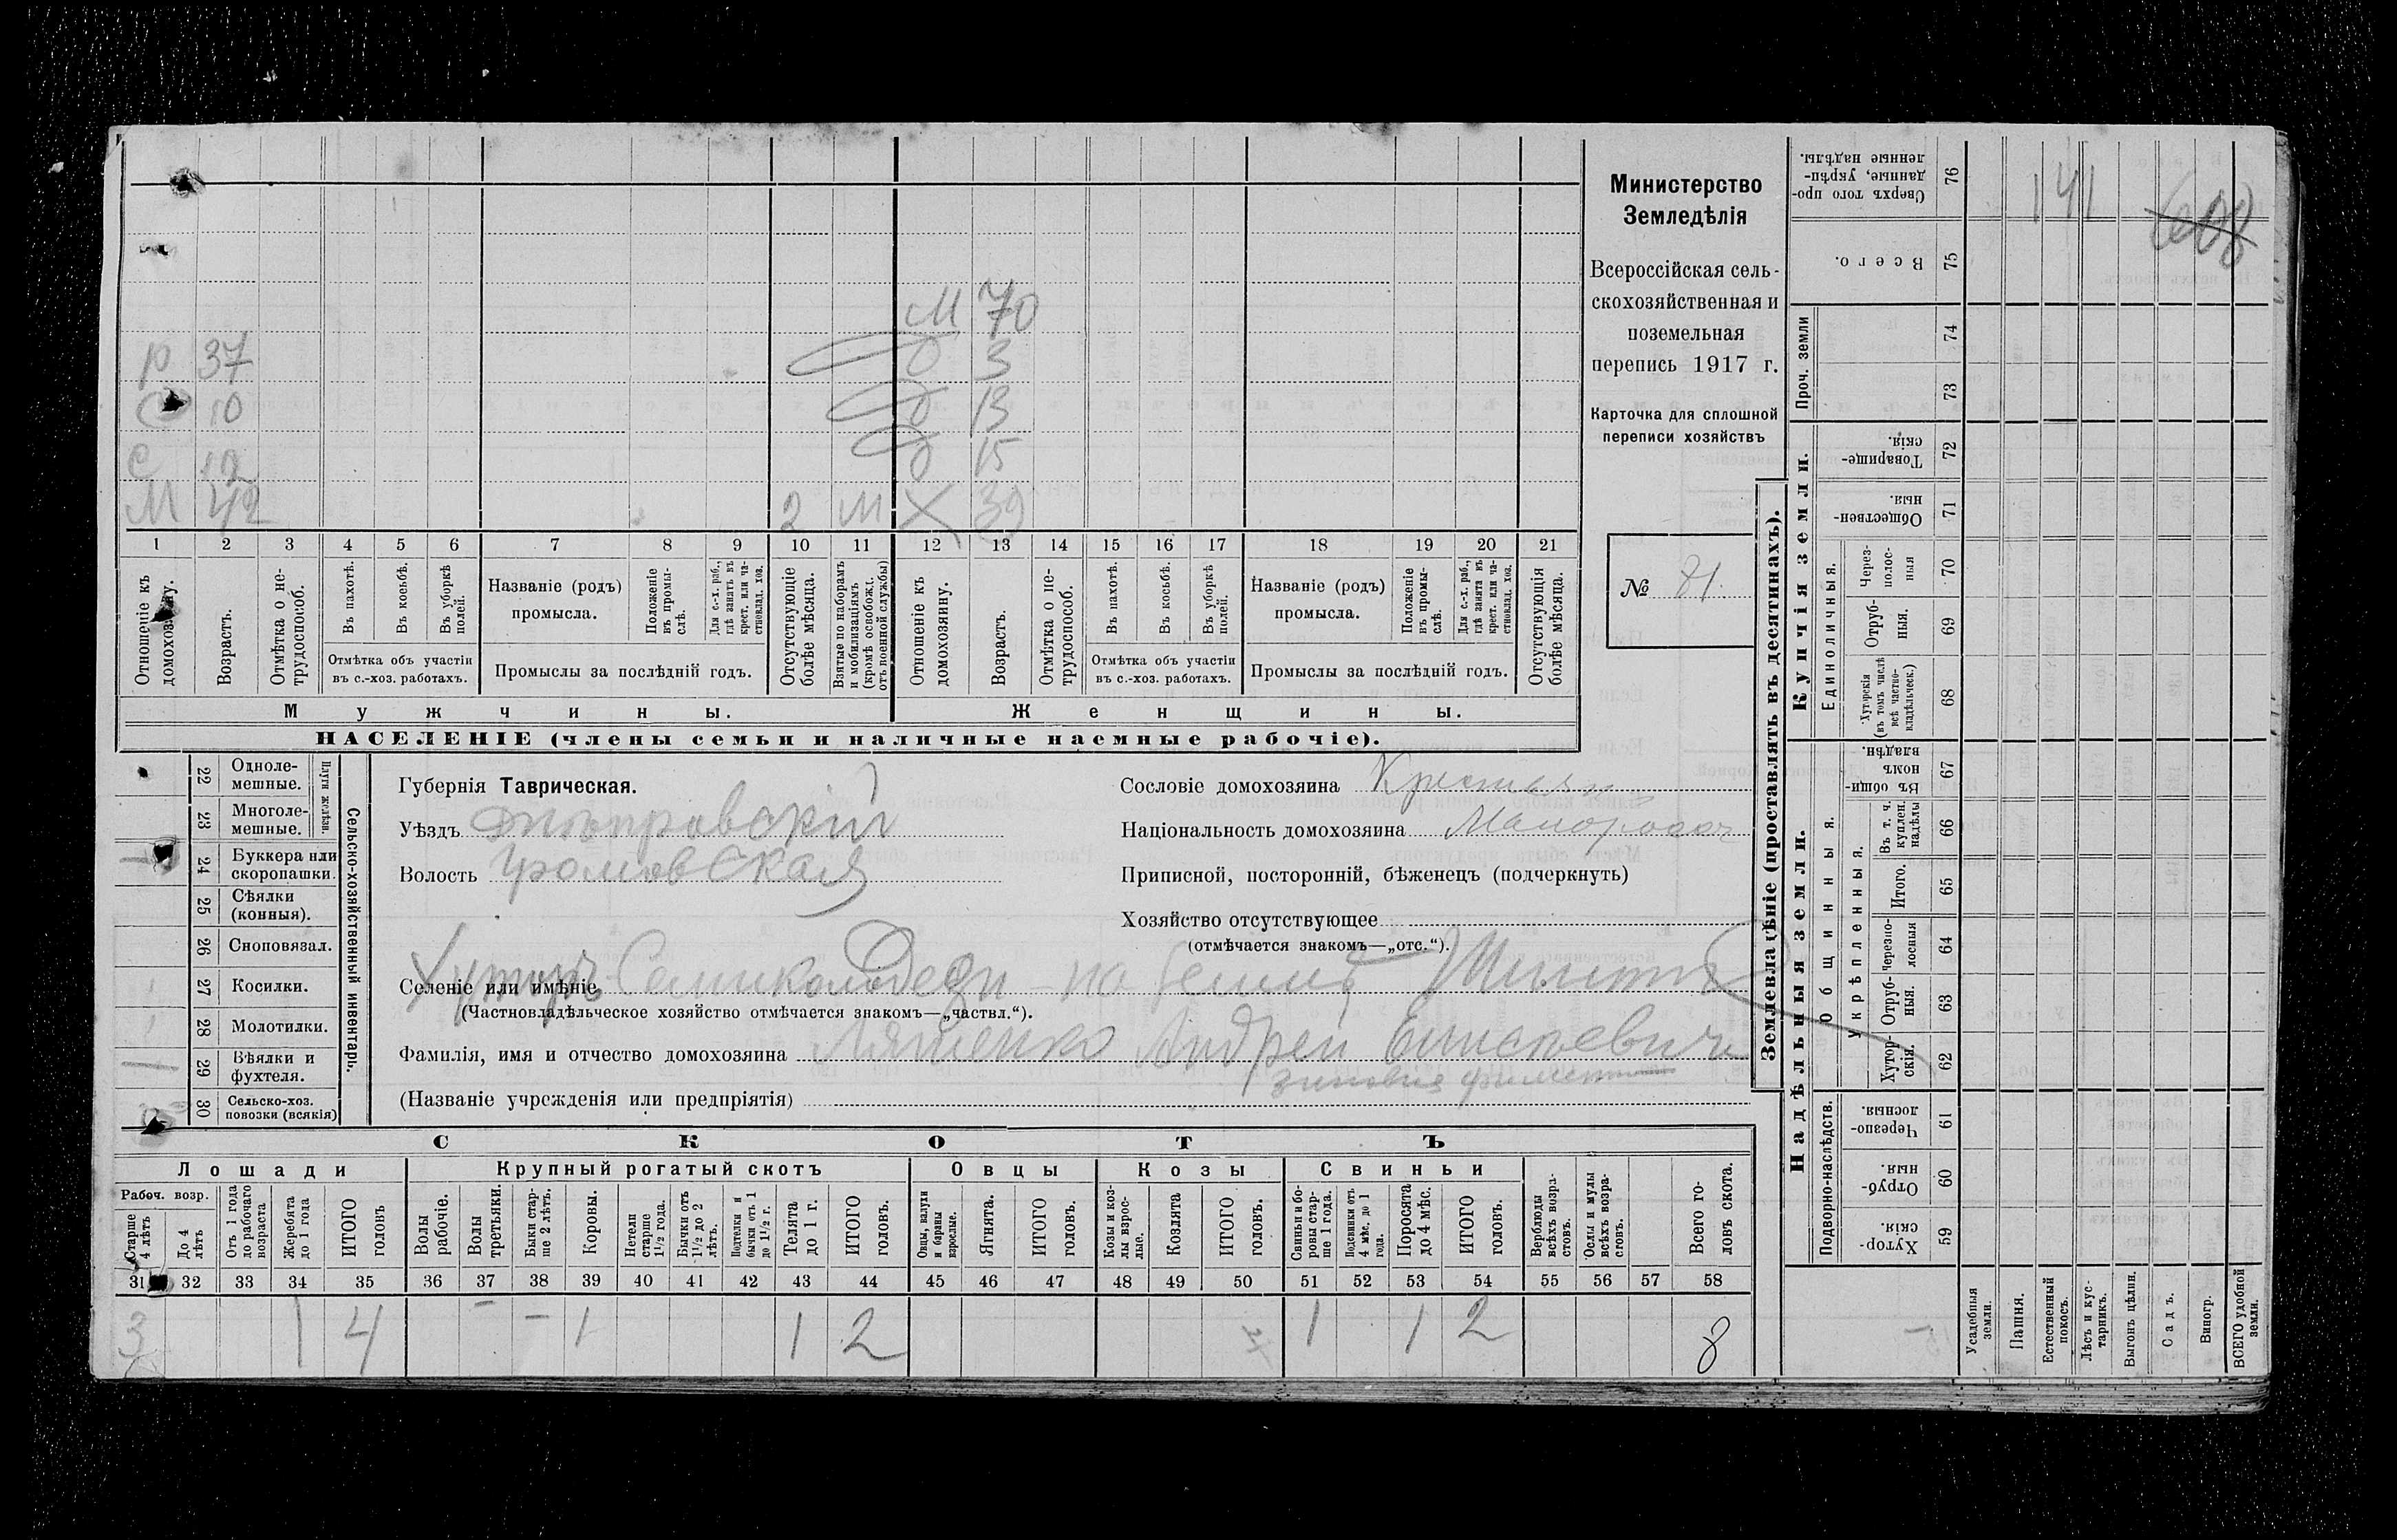 М 70
р 37 д 3
с 10 д 13
с 12 д 15
М 42 2 М Х 39
1 2 3 4 5 6 7 8 9 10 11 12 13 14 15 16 17 18 19 20 21
Отношеніе къ домохозяину.
Возрастъ.
Отмѣтка о нетрудоспособ.
Въ пахотѣ.
Въ косьбѣ.
Въ уборкѣ полей.
Отмѣтка объ участіи въ с.-хоз. работахъ.
Названіе (родъ) промысла.
Положеніе въ промыслѣ.
Для с.-х. раб., гдѣ занятъ въ крест. или частновлад. хоз.
Промыслы за послѣдній годъ.
Отсутствующіе болѣе мѣсяца.
Взятые по наборамъ и мобилизаціямъ (кромѣ освобожд. отъ военной службы)
Отношеніе къ домохозяину.
Возрастъ.
Отмѣтка о нетрудоспособ.
Въ пахотѣ.
Въ косьбѣ.
Въ уборкѣ полей.
Отмѣтка объ участіи въ с.-хоз. работахъ.
Названіе (родъ) промысла.
Положеніе въ промыслѣ.
Для с.-х. раб., гдѣ занята въ крест. или частновлад. хоз.
Промыслы за послѣдній годъ.
Отсутствующія болѣе мѣсяца.
Мужчины. Женщины.
НАСЕЛЕНІЕ (члены семьи и наличные наемные рабочіе).
Министерство
Земледѣлія
Всероссійская сель-
скохозяйственная и
поземельная
перепись 1917 г.
Карточка для сплошной
переписи хозяйствъ
№ 81.
22 Одноле-мешные.
23 Многоле-мешные.
Плуги желѣзн.
24 Буккера или скоропашки.
25 Сѣялки (конныя).
26 Сноповязал.
27 Косилки.
28 Молотилки.
29 Вѣялки и фухтеля.
30 Сельско-хоз. повозки (всякія)
Сельско-хозяйственный инвентарь.
Губернія Таврическая.
Уѣздъ Днѣпровскій
Волость Громовская
Сословіе домохозяина Крестьян
Національность домохозяина Малоросс
Приписной, посторонній, бѣженецъ (подчеркнуть)
Хозяйство отсутствующее
(отмѣчается знакомъ—„отс.“).
Селеніе или имѣніе Хуторъ Семиколодези на землѣ
(Частновладѣльческое хозяйство отмѣчается знакомъ—„частвл.“).
Фамилія, имя и отчество домохозяина Ляшенко Андрей Елисѣевичъ
(Названіе учрежденія или предпріятія)
СКОТЪ
Лошади Крупный рогатый скотъ Овцы Козы Свиньи
Рабоч. возр.
Старше 4 лѣтъ
До 4 лѣтъ
Отъ 1 года до рабочаго возраста
Жеребята до 1 года
ИТОГО головъ
Волы рабочіе.
Волы третьяки.
Быки старше 2 лѣтъ.
Коровы.
Нетели старше 1½ года.
Бычки отъ 1½ до 2 лѣтъ.
Подтелки и бычки отъ 1 до 1½ г.
Телята до 1 г.
ИТОГО головъ.
Овцы, валухи и бараны взрослые.
Ягнята.
ИТОГО головъ.
Козы и козлы взрослые.
Козлята
ИТОГО головъ.
Свиньи и боровы старше 1 года.
Подсвинки отъ 4 мѣс. до 1 года.
Поросята до 4 мѣс.
ИТОГО головъ.
Верблюды всѣхъ возрастовъ.
Ослы и мулы всѣхъ возрастовъ.
Всего головъ скота.
31 32 33 34 35 36 37 38 39 40 41 42 43 44 45 46 47 48 49 50 51 52 53 54 55 56 57 58
3 1 4 - - 1 1 2 1 1 2 8
Землевладѣніе (проставлять въ десятинахъ).
Купчія земли.
Надѣльныя земли.
76 Сверхъ того проданные, укрѣпленные надѣлы.
75 Всего.
Проч. земли
74
73
72 Товарищескія.
71 Общественныя.
Единоличныя.
70 Черезполосныя
69 Отрубныя.
68 Хуторскія (въ томъ числѣ всѣ частновладѣльческ.)
Общинныя.
67 Въ общинномъ владѣн.
Укрѣпленныя.
66 Въ т. ч. куплен. надѣлы
65 Итого.
64 Черезполосныя
63 Отрубныя.
62 Хуторскія.
Подворно-наслѣдств.
61 Черезполосныя.
60 Отрубныя.
59 Хуторскія.
Усадебныя земли.
Пашня.
Естественный покосъ.
Лѣсъ и кустарникъ.
Выгонъ цѣлин.
Садъ.
Виногр.
ВСЕГО удобной земли.
141
608